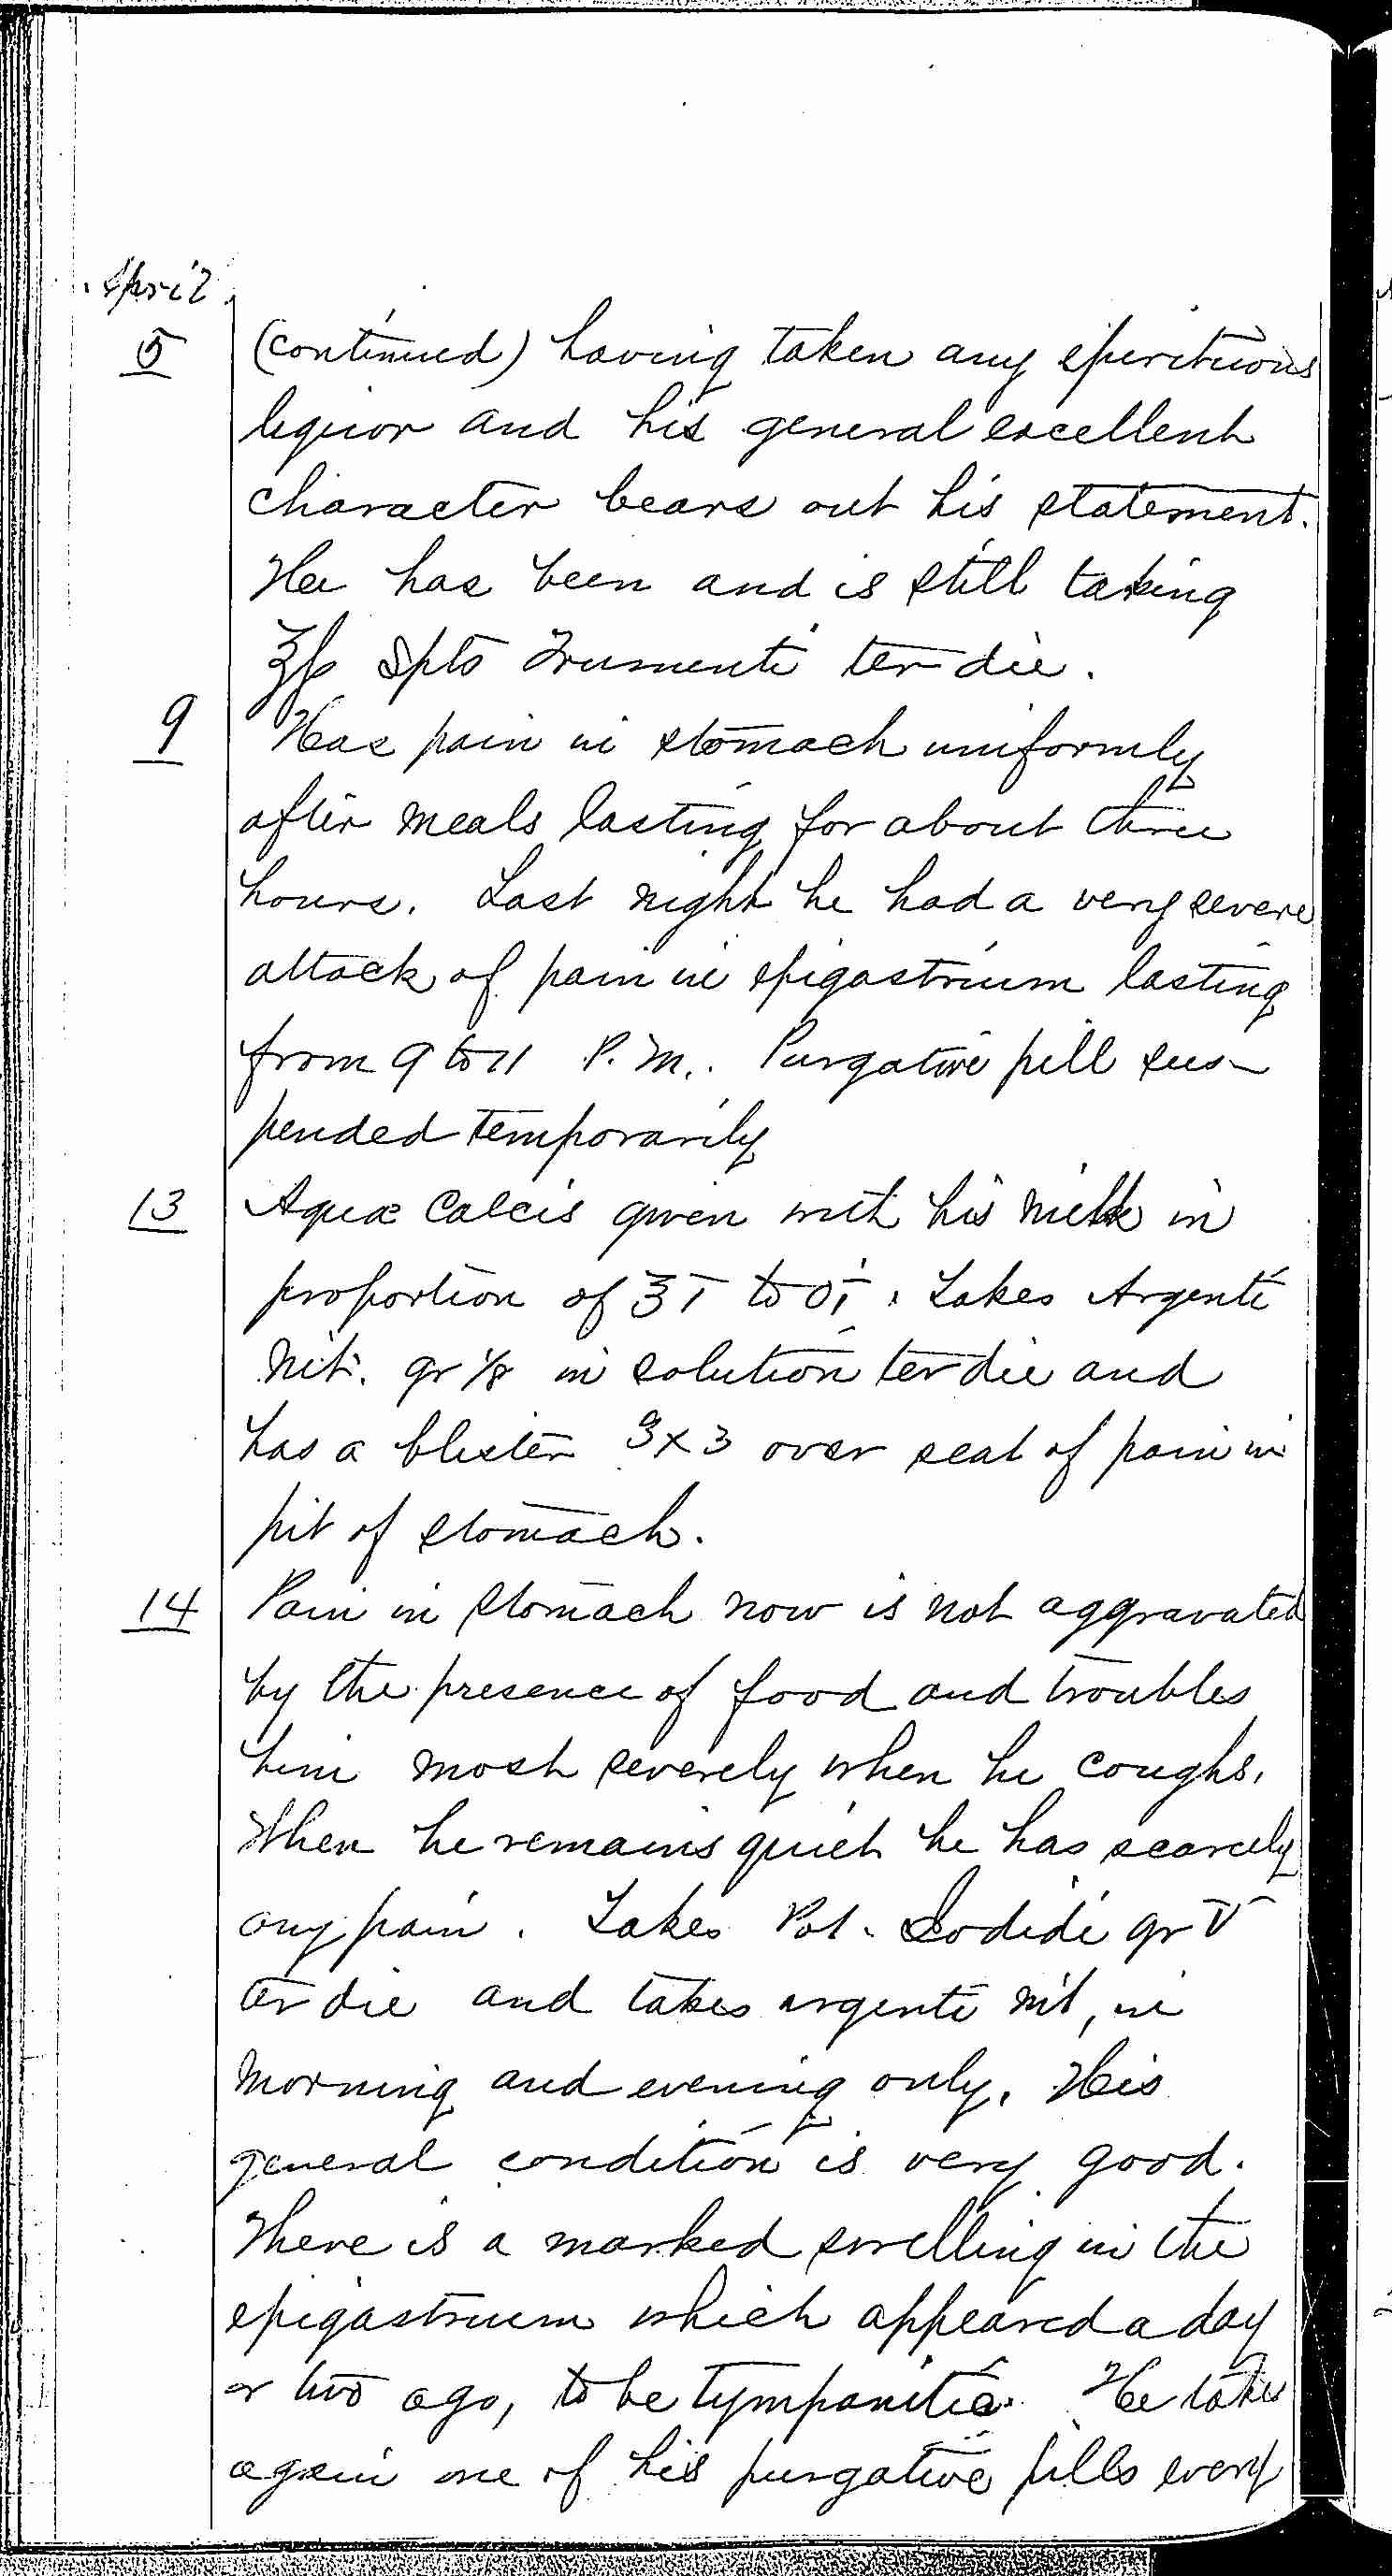 April
5 (continued) having taken any spirituous
liquor and his general excellent
character bears out his statement.
He has been and is still taking
℥ß Spts Frumenti ter die.
9 Has pain in stomach uniformly
after meals lasting for about three
hours. Last night he had a very severe
attack of pain in epigastrium lasting
from 9 to 11 P.M.. Purgative pill sus-
pended temporarily
13 Aquæ Calcis given with his milk in
proportion of ℥i to Oi. Takes Argenti
Nit. gr 1/8 in solution ter die and
has a blister 3x3 over seat of pain in
pit of stomach.
14 Pain in stomach now is not aggravated
by the presence of food and troubles
him most severely when he coughs,
When he remains quiet he has scarcely
any pain. Takes Pot. Iodidi gr V
ter die and takes argenti nit, in
morning and evening only. His
general condition is very good.
There is a marked swelling in the
epigastrium which appeared a day
or two ago, to be tympanitic. He takes
again one of his purgative pills every